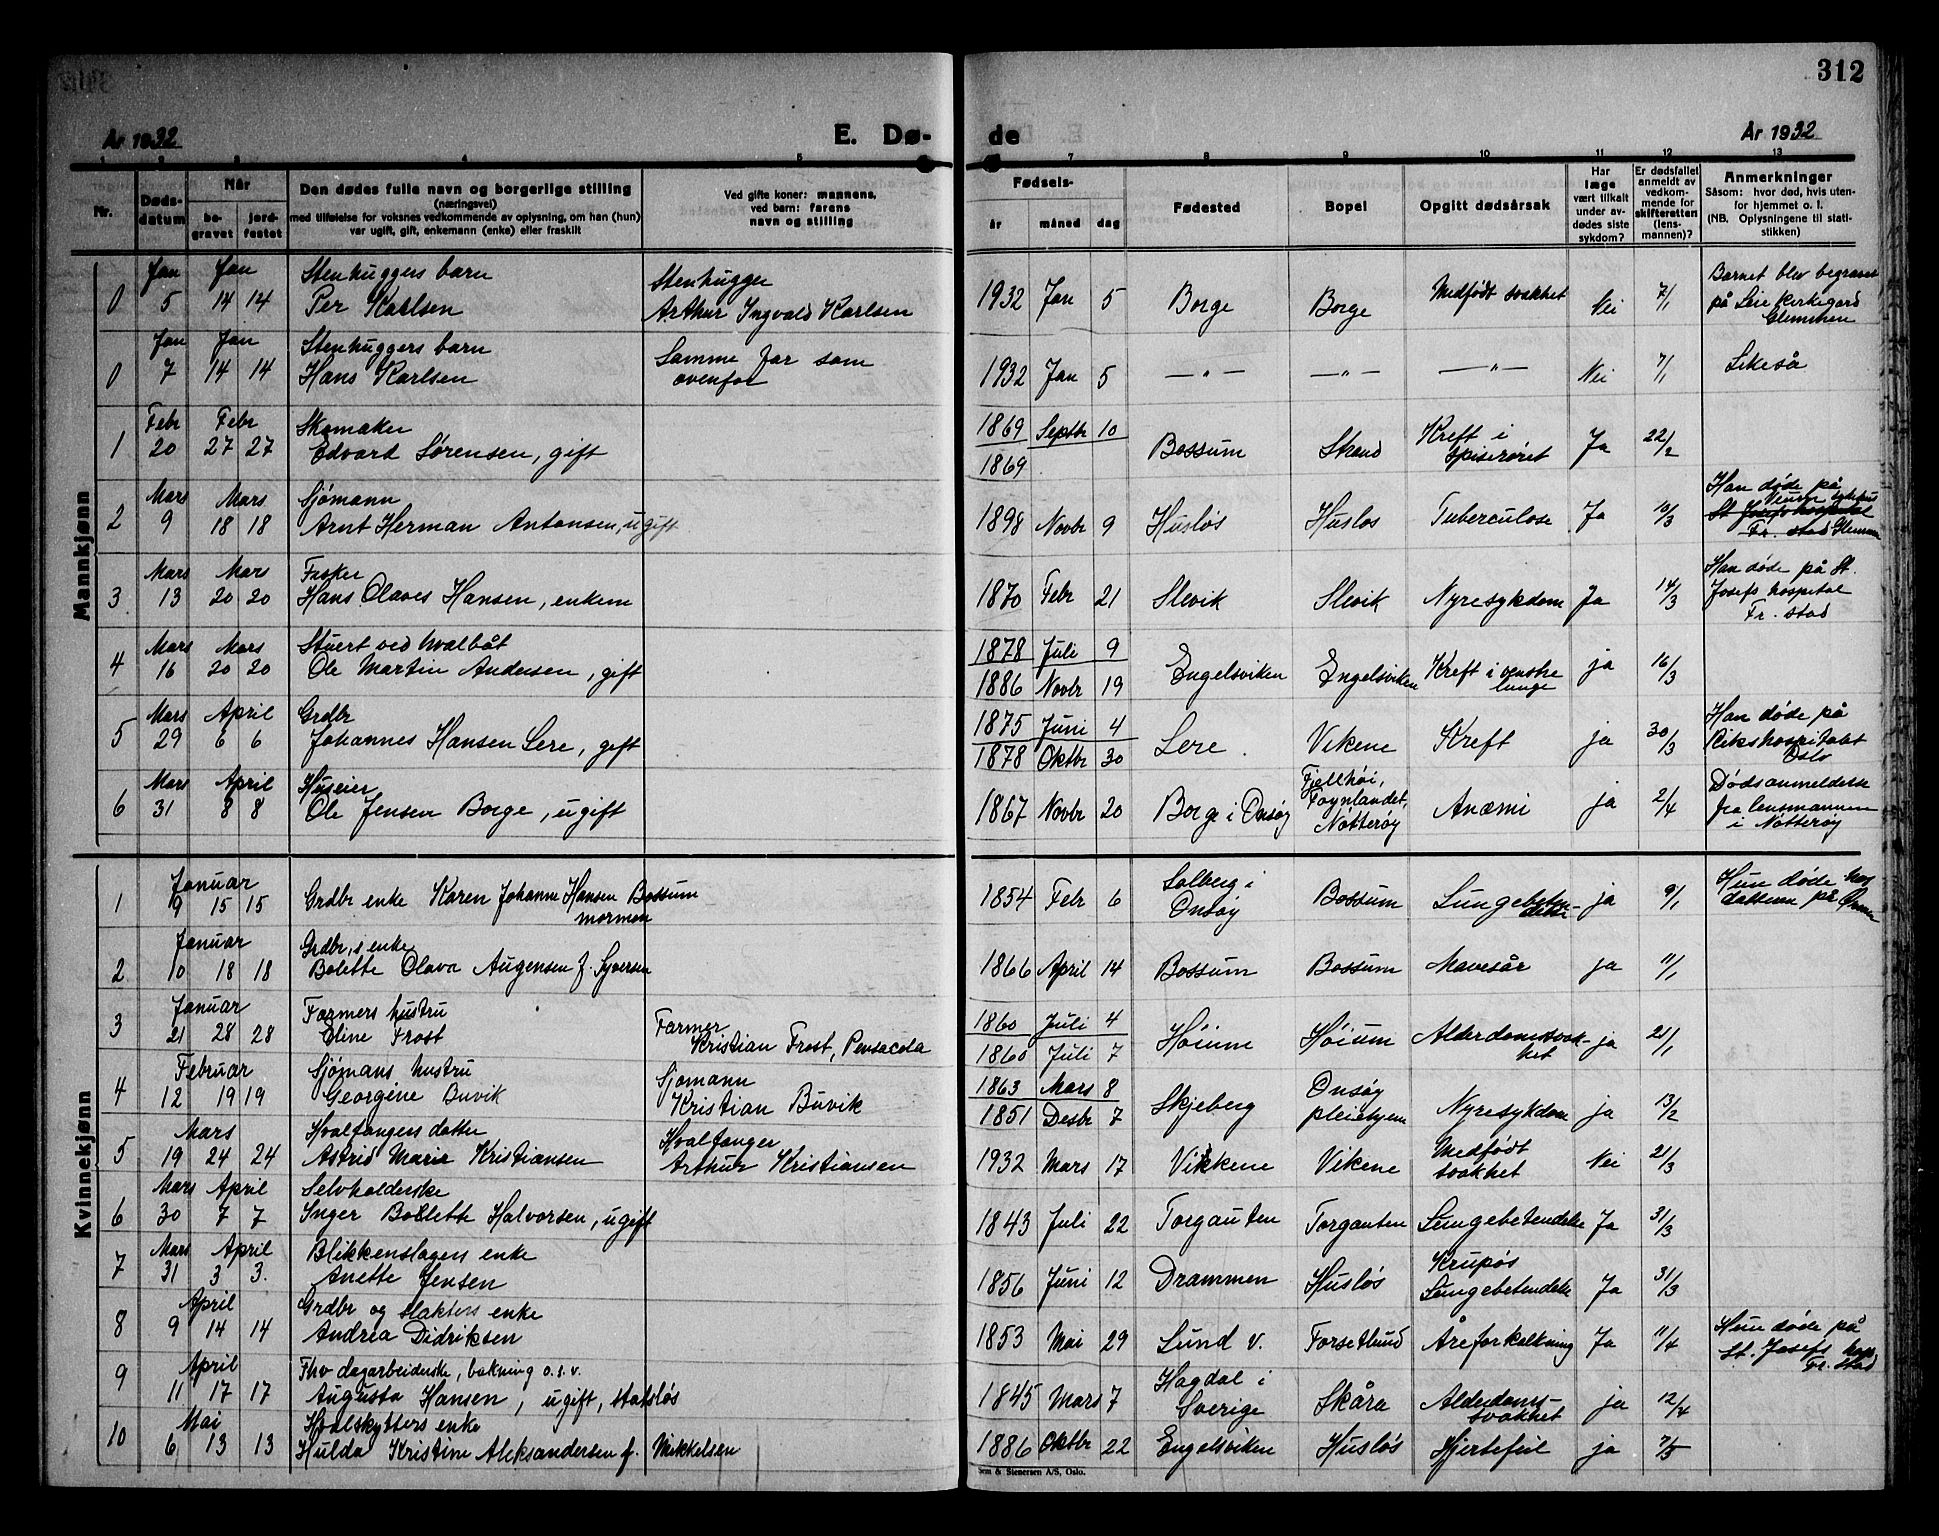 312
År 1932
E. Dø-
de
År 1932
1 2 3 4 5 7 8 9 10 11 12 13
Nr.
Døds-
datum
Når
be-
gravet
jord-
festet
Den dødes fulle navn og borgerlige stilling
(næringsvei)
med tilføielse for voksnes vedkommende av oplysning, om han (hun)
var ugift, gift, enkemann (enke) eller fraskilt
Ved gifte koner: mannens,
ved barn: farens
navn og stilling
Fødsels-
år måned dag
Fødested
Bopel
Opgitt dødsårsak
Har
læge
vært tilkalt
under av-
dødes siste
sykdom?
Er dødsfallet
anmeldt av
vedkom-
mende for
skifteretten
(lens-
mannen)?
Anmerkninger
Såsom: hvor død, hvis uten-
for hjemmet o. l.
(NB. Oplysningene til stati-
stikken)
Mannkjønn
0 Jan 5 Jan 14 14
Stenhuggers barn
Per Karlsen
Stenhugger
Arthur Ingvald Karlsen
1932 Jan 5 Borge Borge Medfødt svakhet Nei 7/1
Barnet blev begravet
på Leie kirkegård
Glemmen
0 Jan 7 Jan 14 14
Stenhuggers barn
Hans Karlsen
Samme far som
ovenfor
1932 Jan 5 —"— —"— —"— Nei 7/1 Likeså
1 Febr 20 Febr 27 27
Skomaker
Edvard Sørensen, gift
1869 Septbr 10
1869
Bossum Strand Kreft i
spiserøret Ja 22/2
2 Mars 9 Mars 18 18
Sjømann
Arnt Herman Antonsen, ugift
1898 Novbr 9 Husløs Husløs Tuberculose Ja 10/3
Han døde på
St Josefs hospital
Fr. stad Glemmen
3 Mars 13 Mars 20 20
Fisker
Hans Olaves Hansen, enkem
1870 Febr 21 Slevik Slevik Nyresykdom Ja 14/3
Han døde på St.
Josefs hospital
Fr. stad
4 Mars 16 Mars 20 20
Stuert ved hvalbåt
Ole Martin Andersen, gift
1878 Juli 9
1886 Novbr 19
Engelsviken Engelsviken Kreft i venstre
lunge ja 16/3
5 Mars 29 April 6 6
Grdbr
Johannes Hansen Lere, gift
1875 Juni 4
1878 Oktbr 30
Lere Vikene Kreft ja 30/3
Han døde på
Rikshospitalet
Oslo
6 Mars 31 April 8 8
Huseier
Ole Jensen Borge, ugift
1867 Novbr 20 Borge i Onsøy
Fjellhøi,
Føynlandet,
Nøtterøy
Anæmi ja 2/4
Dødsanmeldelse
fra lensmannen
i Nøtterøy
Kvinnekjønn
1 Januar 9 15 15
Grdbr enke Karen Johanne Hansen Bossum
mormon
1854 Febr 6 Solberg i
Onsøy Bossum Lungebeten-
delse ja 9/1
Hun døde hos
datteren på
2 Januar 10 18 18
Grdbr,s enke
Bolette Olava Augensen f. Syversen
1866 April 14 Bossum Bossum Mavesår ja 11/1
3 Januar 21 28 28
Farmers hustru
Eline Frost
Farmer
Kristian Frost, Pensacola
1860 Juli 4
1860 Juli 7
Høium Høium Alderdomssvak-
het ja 21/1
4 Februar 12 19 19
Sjømans hustru
Georgine Buvik
Sjømann
Kristian Buvik
1863 Mars 8
1851 Desbr 7
Skjeberg Onsøy
pleiehjem Nyresykdom ja 13/2
5 Mars 19 24 24
Hvalfangers datter
Astrid Marie Kristiansen
Hvalfanger
Arthur Kristiansen
1932 Mars 17 Vikene Vikene Medfødt
svakhet Nei 21/3
6 Mars 30 April 7 7
Selvholderske
Inger Bollette Halvorsen, ugift
1843 Juli 22 Torgauten Torgauten Lungebetendelse Ja 31/3
7 Mars 31 April 3 3.
Blikkenslagers enke
Anette Jensen
1856 Juni 12 Drammen Husløs Krupøs
Lungebetendelse Ja 31/3
8 April 9 14 14
Grdbr og slakters enke
Andrea Didriksen
1853 Mai 29 Lund v. Forsetlund Åreforkalkning Ja 11/4
Hun døde på
St. Josefs hosp
Fr. stad
9 April 11 17 17
Fhv dagarbeiderske, bakning o.s.v.
Augusta Hansen, ugift, statsløs
1845 Mars 7 Hogdal i
Sverige Skåra Alderdoms-
svakhet ja 12/4
10 Mai 6 13 13
Hvalskytters enke
Hulda Kristine Aleksandersen f. Mikkelsen
1886 Oktbr 22 Engelsviken Husløs Hjertefeil ja 7/5
Sem & Stenersen A/S, Oslo.